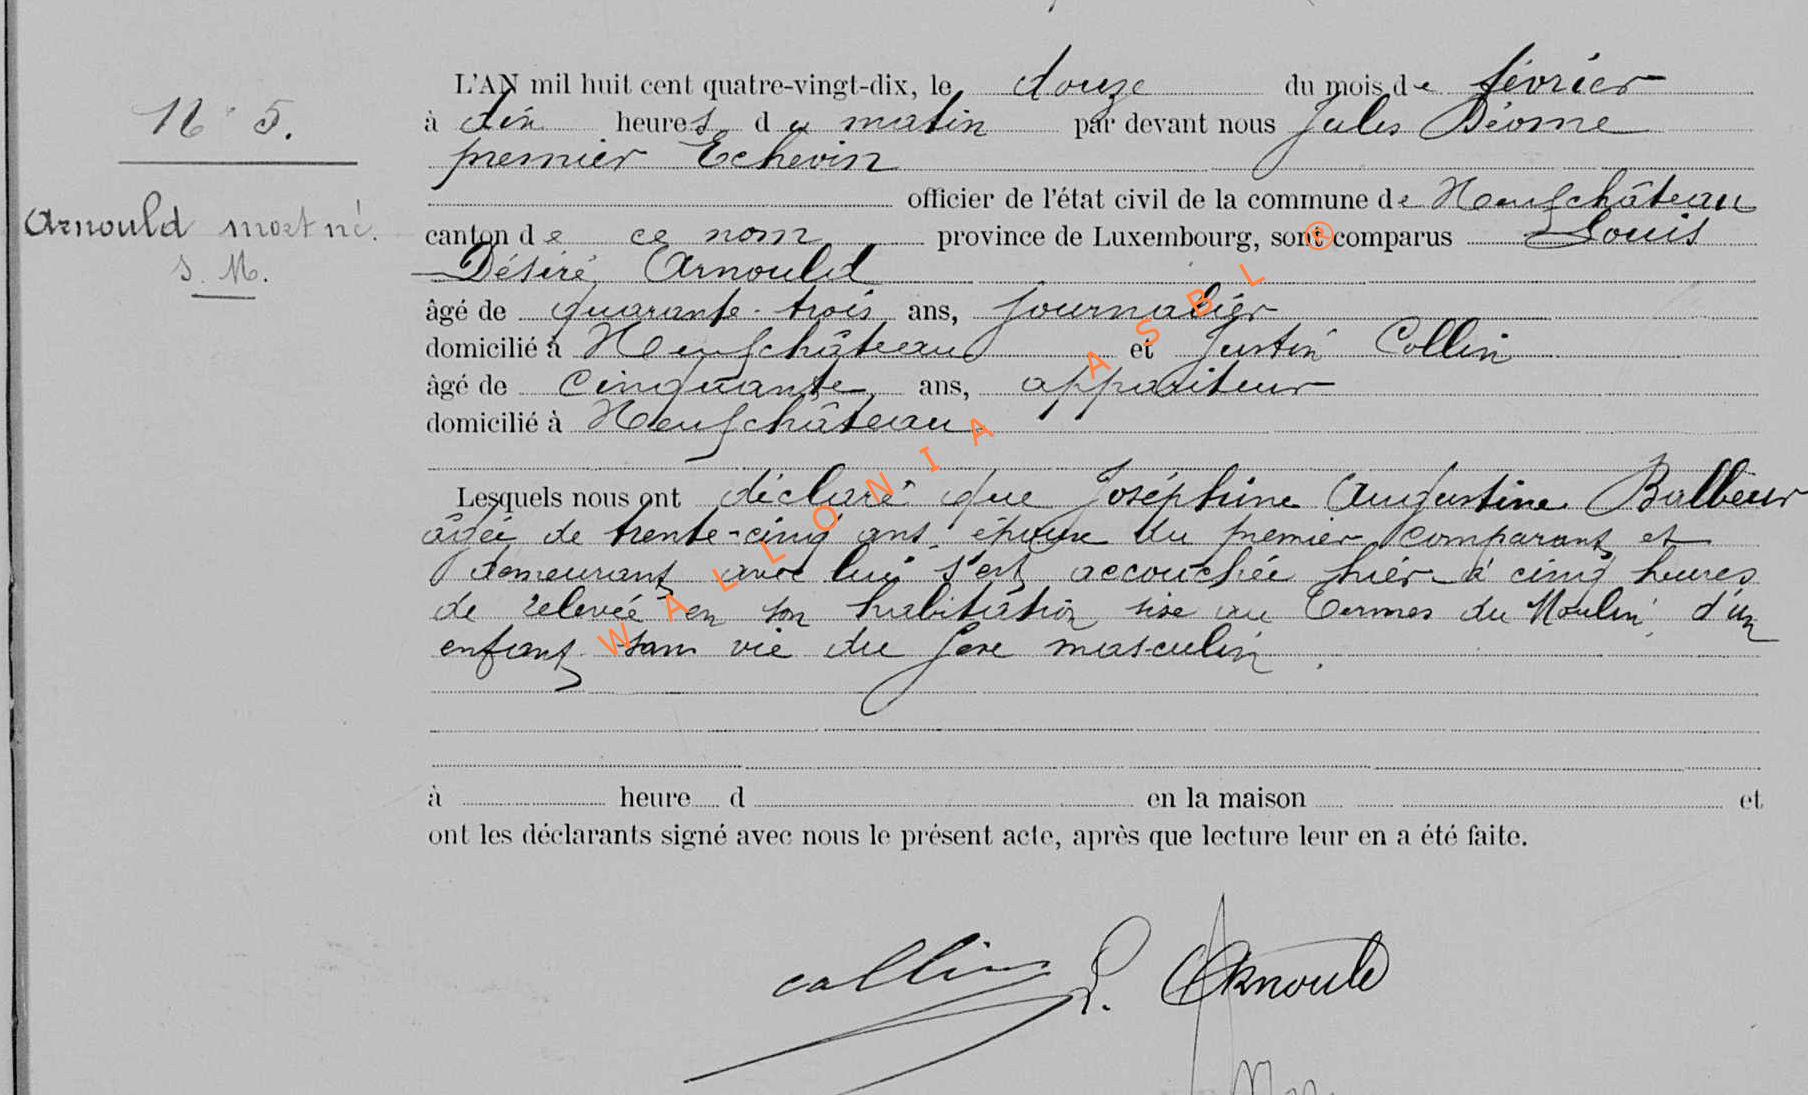 N° 5.
Arnould mort né.
s. M.
L'AN mil huit cent quatre-vingt-dix, le douze du mois de février
à dix heures du matin par devant nous Jules Déome
premier Echevin
officier de l'état civil de la commune de Neufchâteau
canton de ce nom province de Luxembourg, sont comparus Louis
Désiré Arnould
âgé de quarante-trois ans, journalier
domicilié à Neufchâteau et Justin Collin
âgé de cinquante ans, appariteur
domicilié à Neufchâteau
Lesquels nous ont déclaré que Joséphine Augustine Balbeur
âgée de trente-cinq ans, épouse du premier comparant et
demeurant avec lui s'est accouchée hier à cinq heures
de relevée en son habitation sise au Termes du Moulin d'un
enfant sans vie du sexe masculin.
à heure d en la maison et
ont les déclarants signé avec nous le présent acte, après que lecture leur en a été faite.
collin L. Arnould
WALLONIA ASBL ®